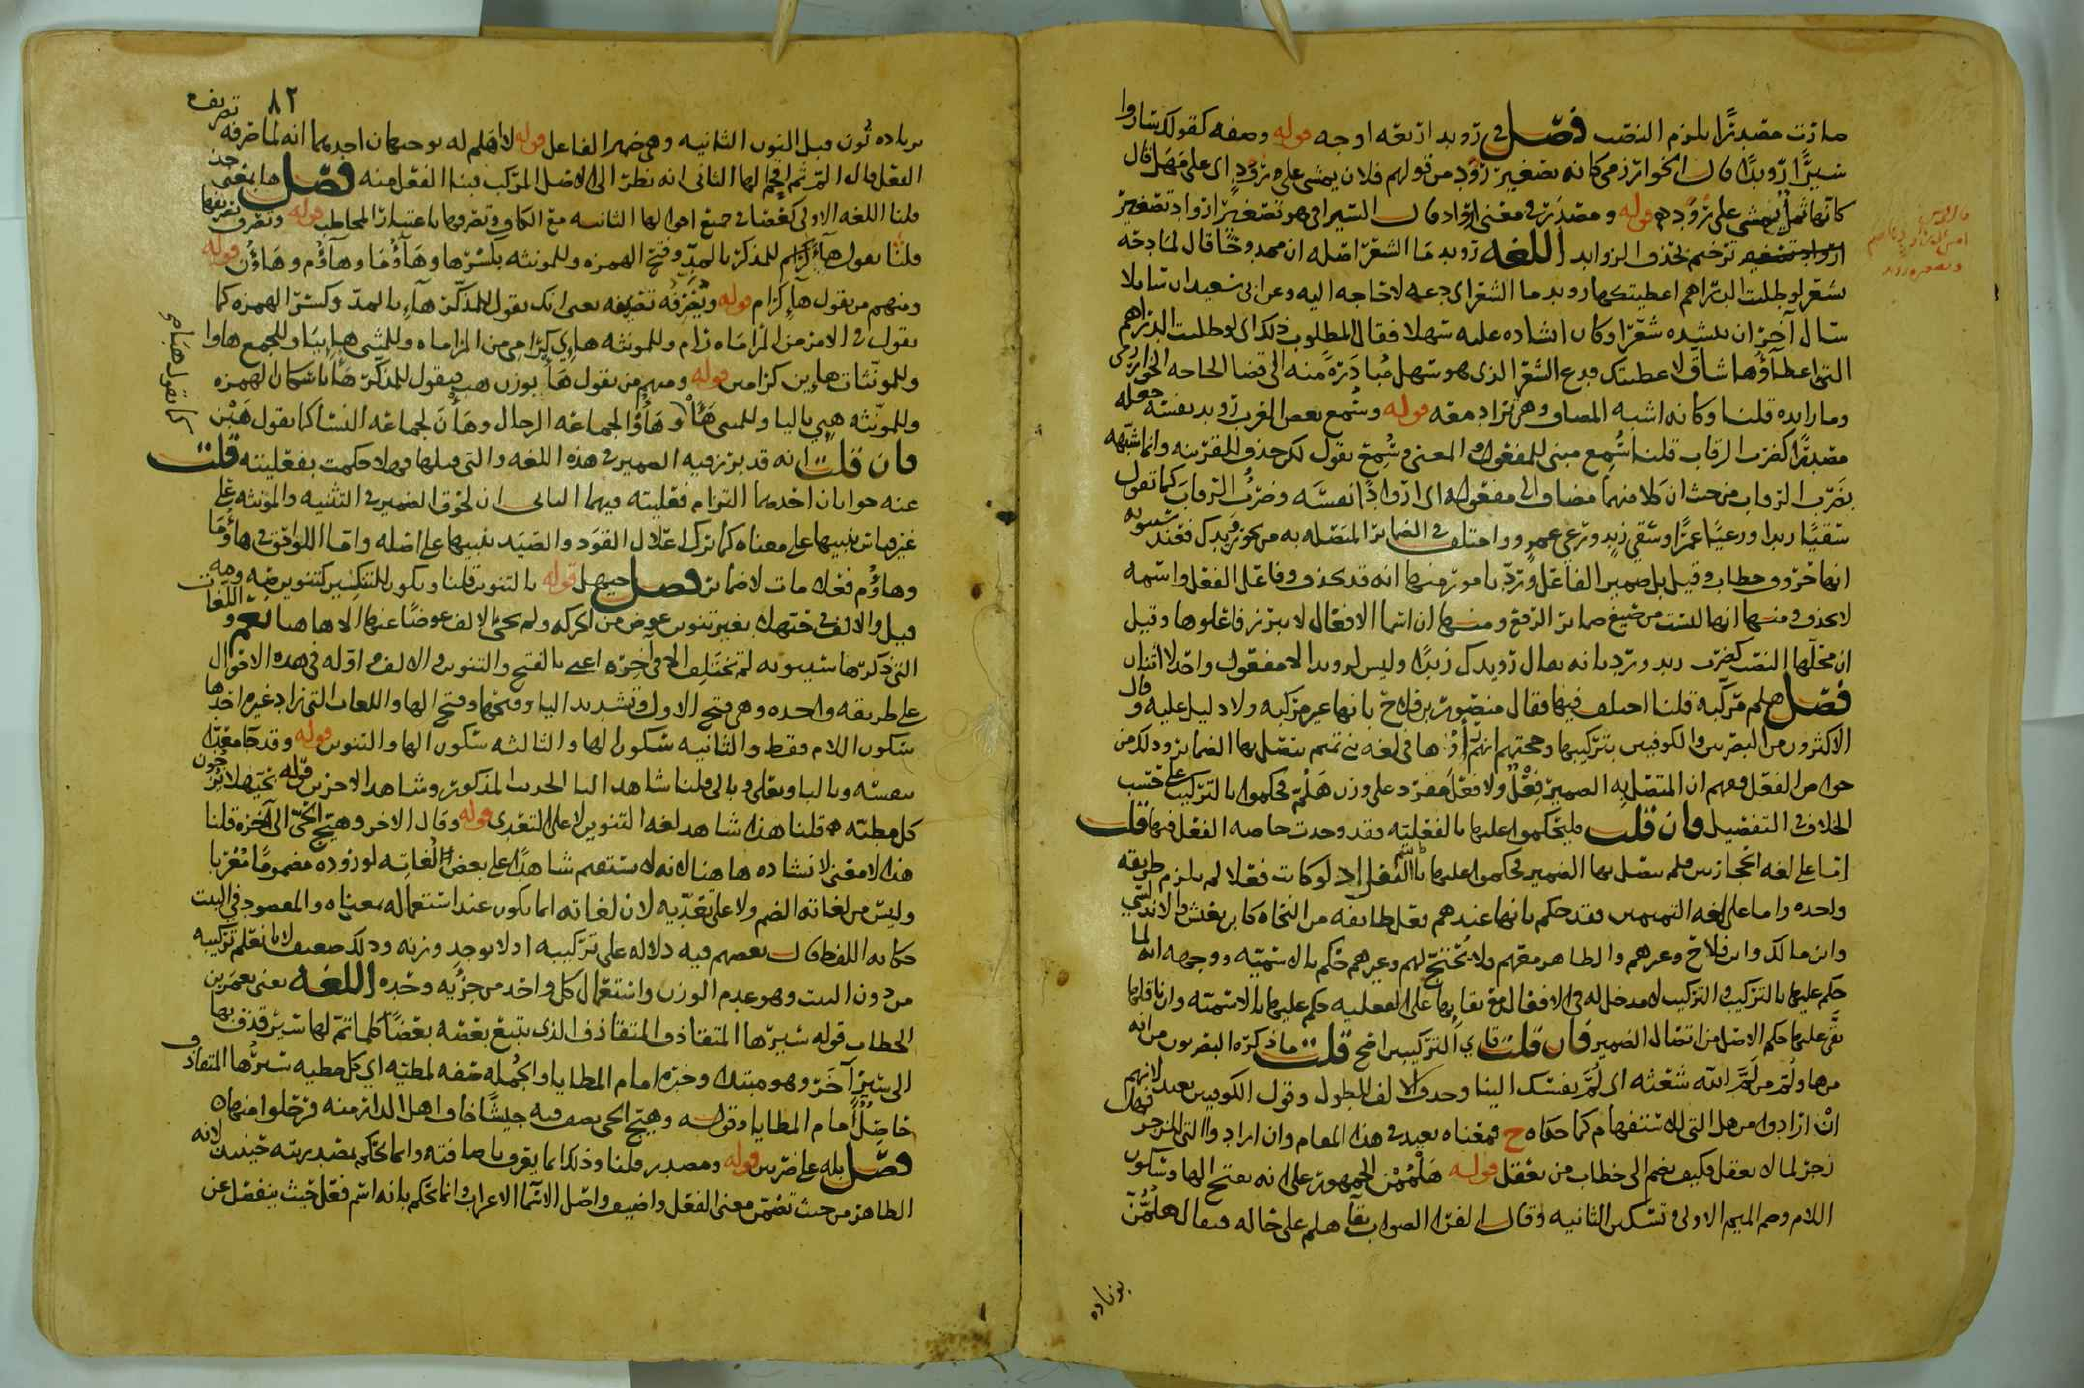 صارت مصدرًا يلزم النصب فصل في رويد اربعة اوجه قوله وصفة كقولك ساروا
سيرًا رويدًا قال الخوارزمي كانه تصغير رُوْد من قولهم فلان يمشي على رود اي على مهل قال
كانها ثمل يمشي على رود قوله ومصدر في معنى ارواد قال السيرافي هو تصغير ارواد تصغير
ترخيم بحذف الزوايد اللغة رويد ما الشعر اصله ان ممدوحًا قال لمادحه
شعر لو طلبت الدراهم اعطيتكها رويد ما الشعر اي دعه لا حاجة اليه وعن ابي سعيد ان سايلا
سال آخر ان ينشده شعرًا وكان انشاده عليه سهلا فقال المطلوب ذلك اي لو طلبت الدراهم
التي اعطاؤها شاق لاعطيتك فدع الشعر الذي هو سهل مبادرة منه الى قضا الحاجة الخوارزمي
وما زايدة قلنا وكانه اشبه المضاف وهي تزاد معه قوله وسمع بعض العرب رويد نفسه جعله
مصدرًا كضرب الرقاب قلنا سُمِع مبني للمفعول المعنى وسُمِع يقول لكن حذف للقرينة وانما شبّهه
بضرب الرقاب من حيث ان كلا منهما مضاف الى مفعوله اي اروادًا نفسَه وضرب الرقابَ كما تقول
سقيًا زيدا ورعيًا عمرًا وسقي زيد ورعي عمرو واختلف في الضماير المتصلة به من نحو رويدك فعند سيبويه
انها حروف خطاب وقيل بل ضمير الفاعل ورُدّ بامور منها انه قد يحذف وفاعل الفعل واسمه
لا يحذف ومنها انها ليست من صيغ ضماير الرفع ومنها ان اسما الافعال لا يبرز فاعلوها وقيل
ان محلها النصب كضرب زيد ورُدّ بانه يقال رويدك زيدًا وليس لرويد الا مفعول واحد لا اثنان
فصل هلم مركبة قلنا اختلف فيها فقال منصور بن فلاح بانها غير مركبة ولا دليل عليه وقال
الاكثرون من البصريين والكوفيين بتركيبها وحجتهم انهم راوها في لغة بني تميم يتصل بها الضماير وذلك من
خواص الفعل فهم ان المتصل به الضمير فعل ولا فعل مفرد على وزن هلُمّ فحكموا بالتركيب على حسب
الخلاف في التفصيل فان قلت فليحكموا عليها بالفعلية فقد وجدت خاصة الفعل فيها قلت
اما على لغة الحجازيين فلم يتصل بها الضمير فحكموا عليها اذ لو كانت فعلا لم يلزم طريقة
واحدة واما على لغة التميميين فقد حكم بانها عندهم فعل طايفة من النحاة كابن يعيش والاندلسي
وابن مالك وابن فلاح وغيرهم والظاهر معهم ولا يحتج لهم وغيرهم حكم بالاسمية ووجهه انه لما
حكم عليها بالتركيب والتركيب لا مدخل له في الافعال مع بقايها على الفعلية حكم عليها بالاسمية وان
بقي عليها حكم الاصل من اتصال الضمير فان قلت فاي التركيبين اصح قلت ما ذكره البصريون من انه
من ها ولُمّ من لَمّ الله شعثه اي لُمّ نفسك الينا وحذف الالف للطول وقول الكوفيين بعيد لانهم
ان ارادوا من هل التي للاستفهام كما حكاه ح فمعناه بعيد في هذا المقام وان ارادوا التي للزجر فهل
زجر لما لا يعقل فكيف يضم الى خطاب من يعقل قوله هَلْمُمْنَ الجمهور على انه بفتح الها وسكون
اللام وضم الميم الاولى وتسكين الثانية وقال الفرا الصواب بقآ هلم على حاله فيقال هلُمّنّ
بزيادة
٨٢
بزيادة نون قبل النون الثانية وهي ضمير الفاعل قوله لا اهلم له توجيهان احدهما انه لما صرفه تصريف
الفعل قال المّ ثم اقحم لها الثاني انه نظر الى الاصل المركب فبنا الفعل منه فصل ها بمعنى خذ
قلنا اللغة الاولى كغضا في جميع احوالها الثانية مع الكاف وتصرفها باعتبار المخاطب قوله وتصرف تصريفها
قلنا تقول هآءَ كرام للمذكر بالمدّ وفتح الهمزة وللمونثة بكسرها وهآؤُما وهآؤُم وهاؤُن قوله
ومنهم من يقول هآءِ كرام قوله ويُصَرِّفه تصريفه يعني انك تقول للمذكّر هآءِ بالمدّ وكسر الهمزة كما
تقول في الامر من المراماة رام وللمونثة هاءي كرامي من المراماة وللمثنى هاءيا وللجمع هاوا
وللمونثات هاءين كرامين قوله ومنهم من يقول هَأْ بوزن هب فيقول للمذكر هَأْ باسكان الهمزة
كما تقول هبا هبي
وللمونثة هَيِي باليا وللمثنى هَأَا وهَأُوا لجماعة الرجال وهَأْنَ لجماعة النسا كما يقول هَبْن
فان قلت انه قد برز فيه الضمير في هذه اللغة والتي قبلها فهلا حكمت بفعليته قلت
عنه جوابان احدهما التزام فعليته فيهما الثاني ان لحوق الضمير في التثنية والمونثة على
غيرها تنبيها على معناه كما ترك اعلال القود والصيد تنبيها على اصله واما اللواحق في هاؤما
وهاؤُم فعلامات لا ضماير فصل حيهل قوله بالتنوين قلنا ويكون للتنكير كتنوين صه ومه
قيل والالف في حيهلا بغير تنوين عوض من الحركة ولم يجئ الالف عوضًا عنها الا هاهنا نعم واللغات
التي ذكرها سيبويه لم تختلف الا في آخره اعني بالفتح والتنوين والالف واوّله في هذه الاحوال
على طريقة واحدة وهي فتح الاول وتشديد اليا وفتحها وفتح الها واللغات التي زاد غيره احدها
سكون اللام فقط والثانية سكون الها والثالثة سكون الها والتنوين قوله وقد جا معدّى
بنفسه وبالبا وبعلى وبالى قلنا شاهد البا الحديث المذكور وشاهد الاخر قوله بحيّهلا يزجون
كل مطية قلنا هذا شاهد لغة التنوين لا على التعدي قوله وقال الاخر وهيّج الحيّ الى آخره قلنا
هذا لا معنى لانشاده هاهنا لانه لا يستقيم شاهدًا على بعض لغاته لوروده مضمومًا مُعْربا
وليس من لغاته الضم ولا على تعدّيه لان لغاته انما يكون عند استعماله بمعناه والمقصود في البيت
حكاية اللفظ قال بعضهم فيه دلالة على تركيبه اذ لا يوجد وزنه وذلك ضعيف لانا نعلم تركيبه
من دون البيت وهو عدم الوزن واستعمال كل واحد من جزئيه وحده اللغة يعني بعض بن
الخطاب قوله سيرها المتقاذف المتقاذف الذي يتبع بعضه بعضًا كلما تمّ لها سير قذف بها
الى سير آخر وهو مبتدا وخبره امام المطايا والجملة صفة لمطيّة اي كل مطية سيرُها المتقاذف
حاصِلٌ امام المطايا وقوله وهيّج الحي يصف فيه جيشًا خاف اهل الدار منه فرحلوا منها
فصل بله على ضربين قوله ومصدر قلنا وذلك انما يعرف باضافته وانما يحكم بمصدريته حينئذ لانه
الظاهر من حيث تضمّن معنى الفعل واضيف واصل الاسما الاعراب وانما يحكم بانه اسم فعل حيث ينفصل عن